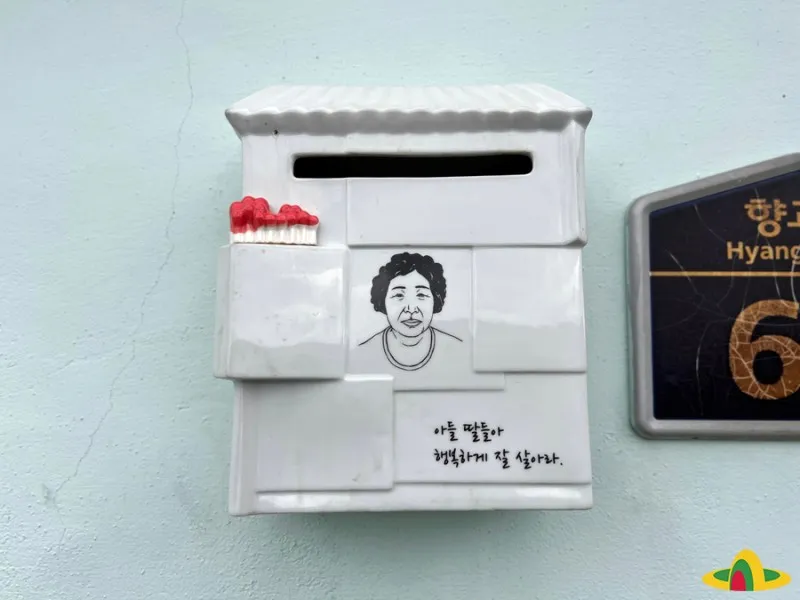 아들 딸들아
행복하게 잘 살아라.
향
Hyang
6